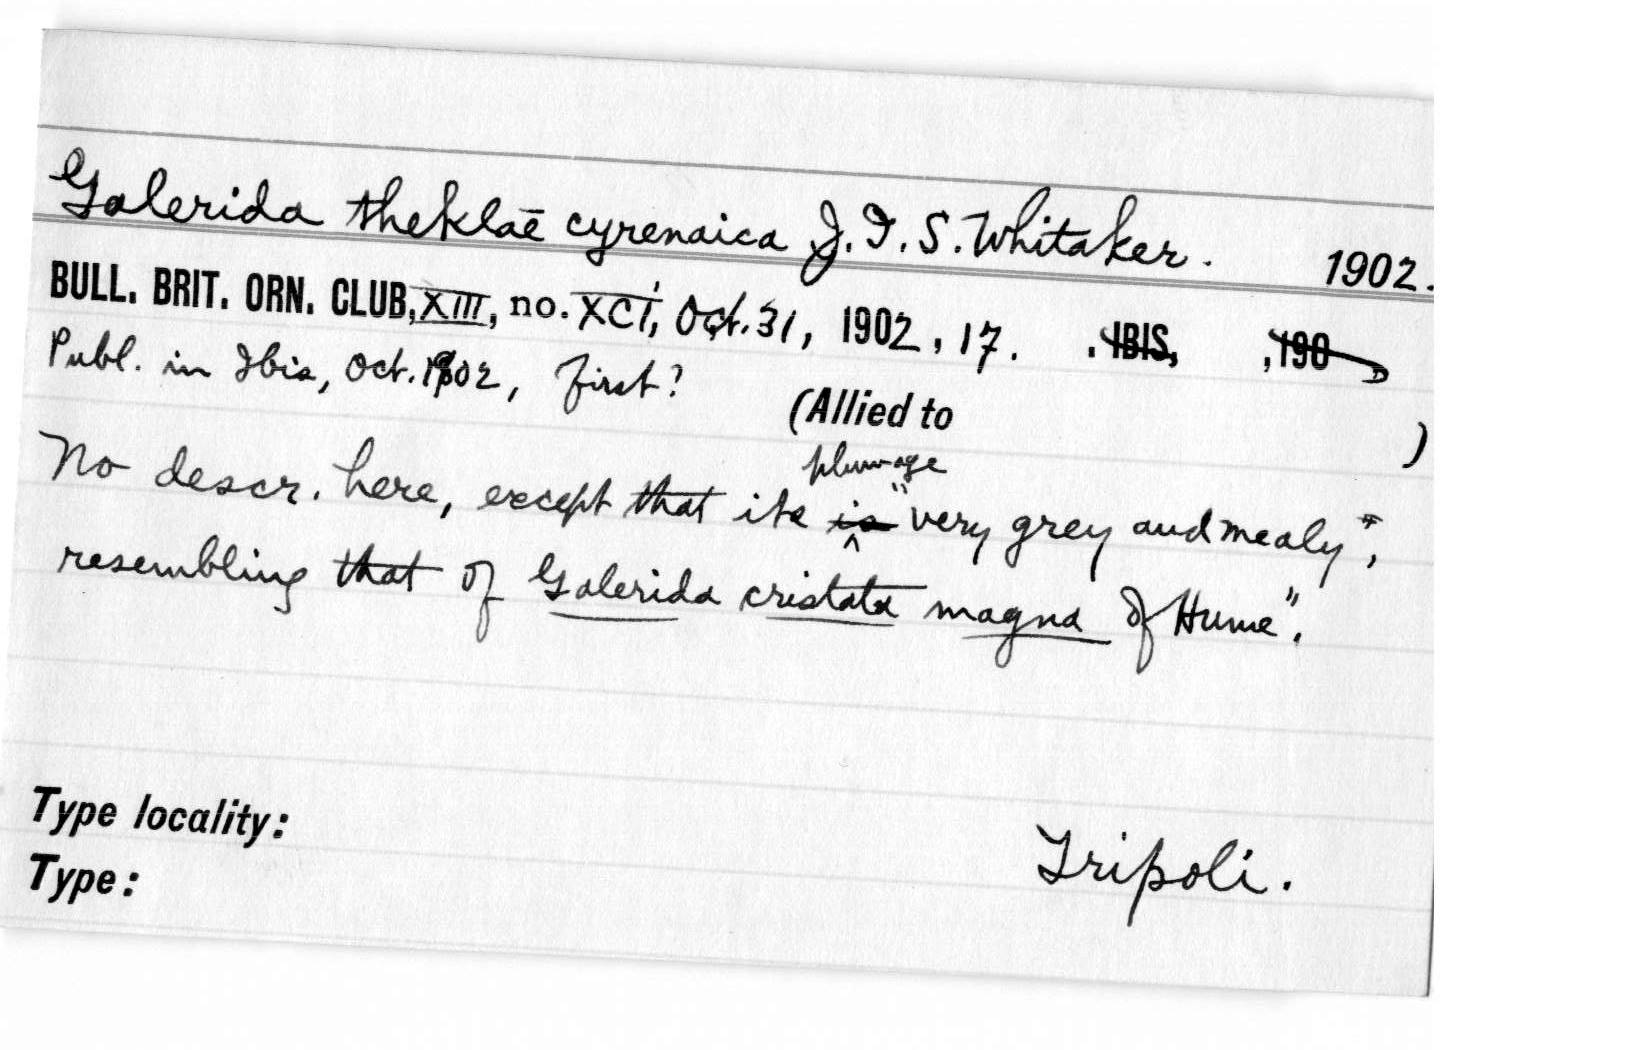 Galerida theklae cyrenaica J. I. S. Whitaker. 1902.
BULL. BRIT. ORN. CLUB, XIII, no. XCI, Oct. 31, 1902, 17. . IBIS, , 190
Publ. in Ibis, Oct. 1902, first?
(Allied to )
plumage
No descr. here, except that its is "very grey and mealy",
resembling that of Galerida cristata magna of Hume".
Type locality: Tripoli.
Type: